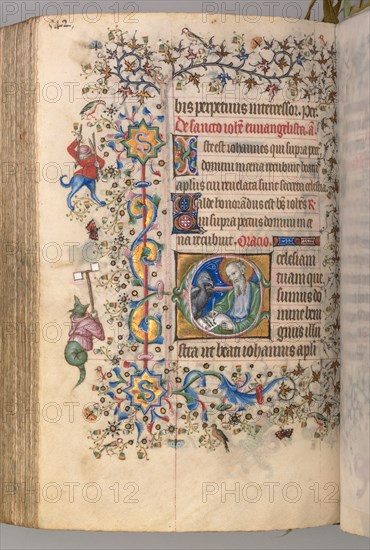 542
bis perpetuus intercessor. Per.
De sancto ioh̄e euuangelista. a̅
Iste est iohannes qui supra pec
domini in cena recubuit beatꝰ
apl̄s cui reuelata sunt secreta celestia
Valde honorādus est b̄s ioh̄es R̄
Qui supra pectus domini in ce
na recubuit. Oracio.
Ecclesiam
tuam que
sumus do
mine beni
gnius illu
stra ut beati iohannis apli
S
S
PHOTO 12
PHOTO 12
PHOTO 12
PHOTO 12
PHOTO 12